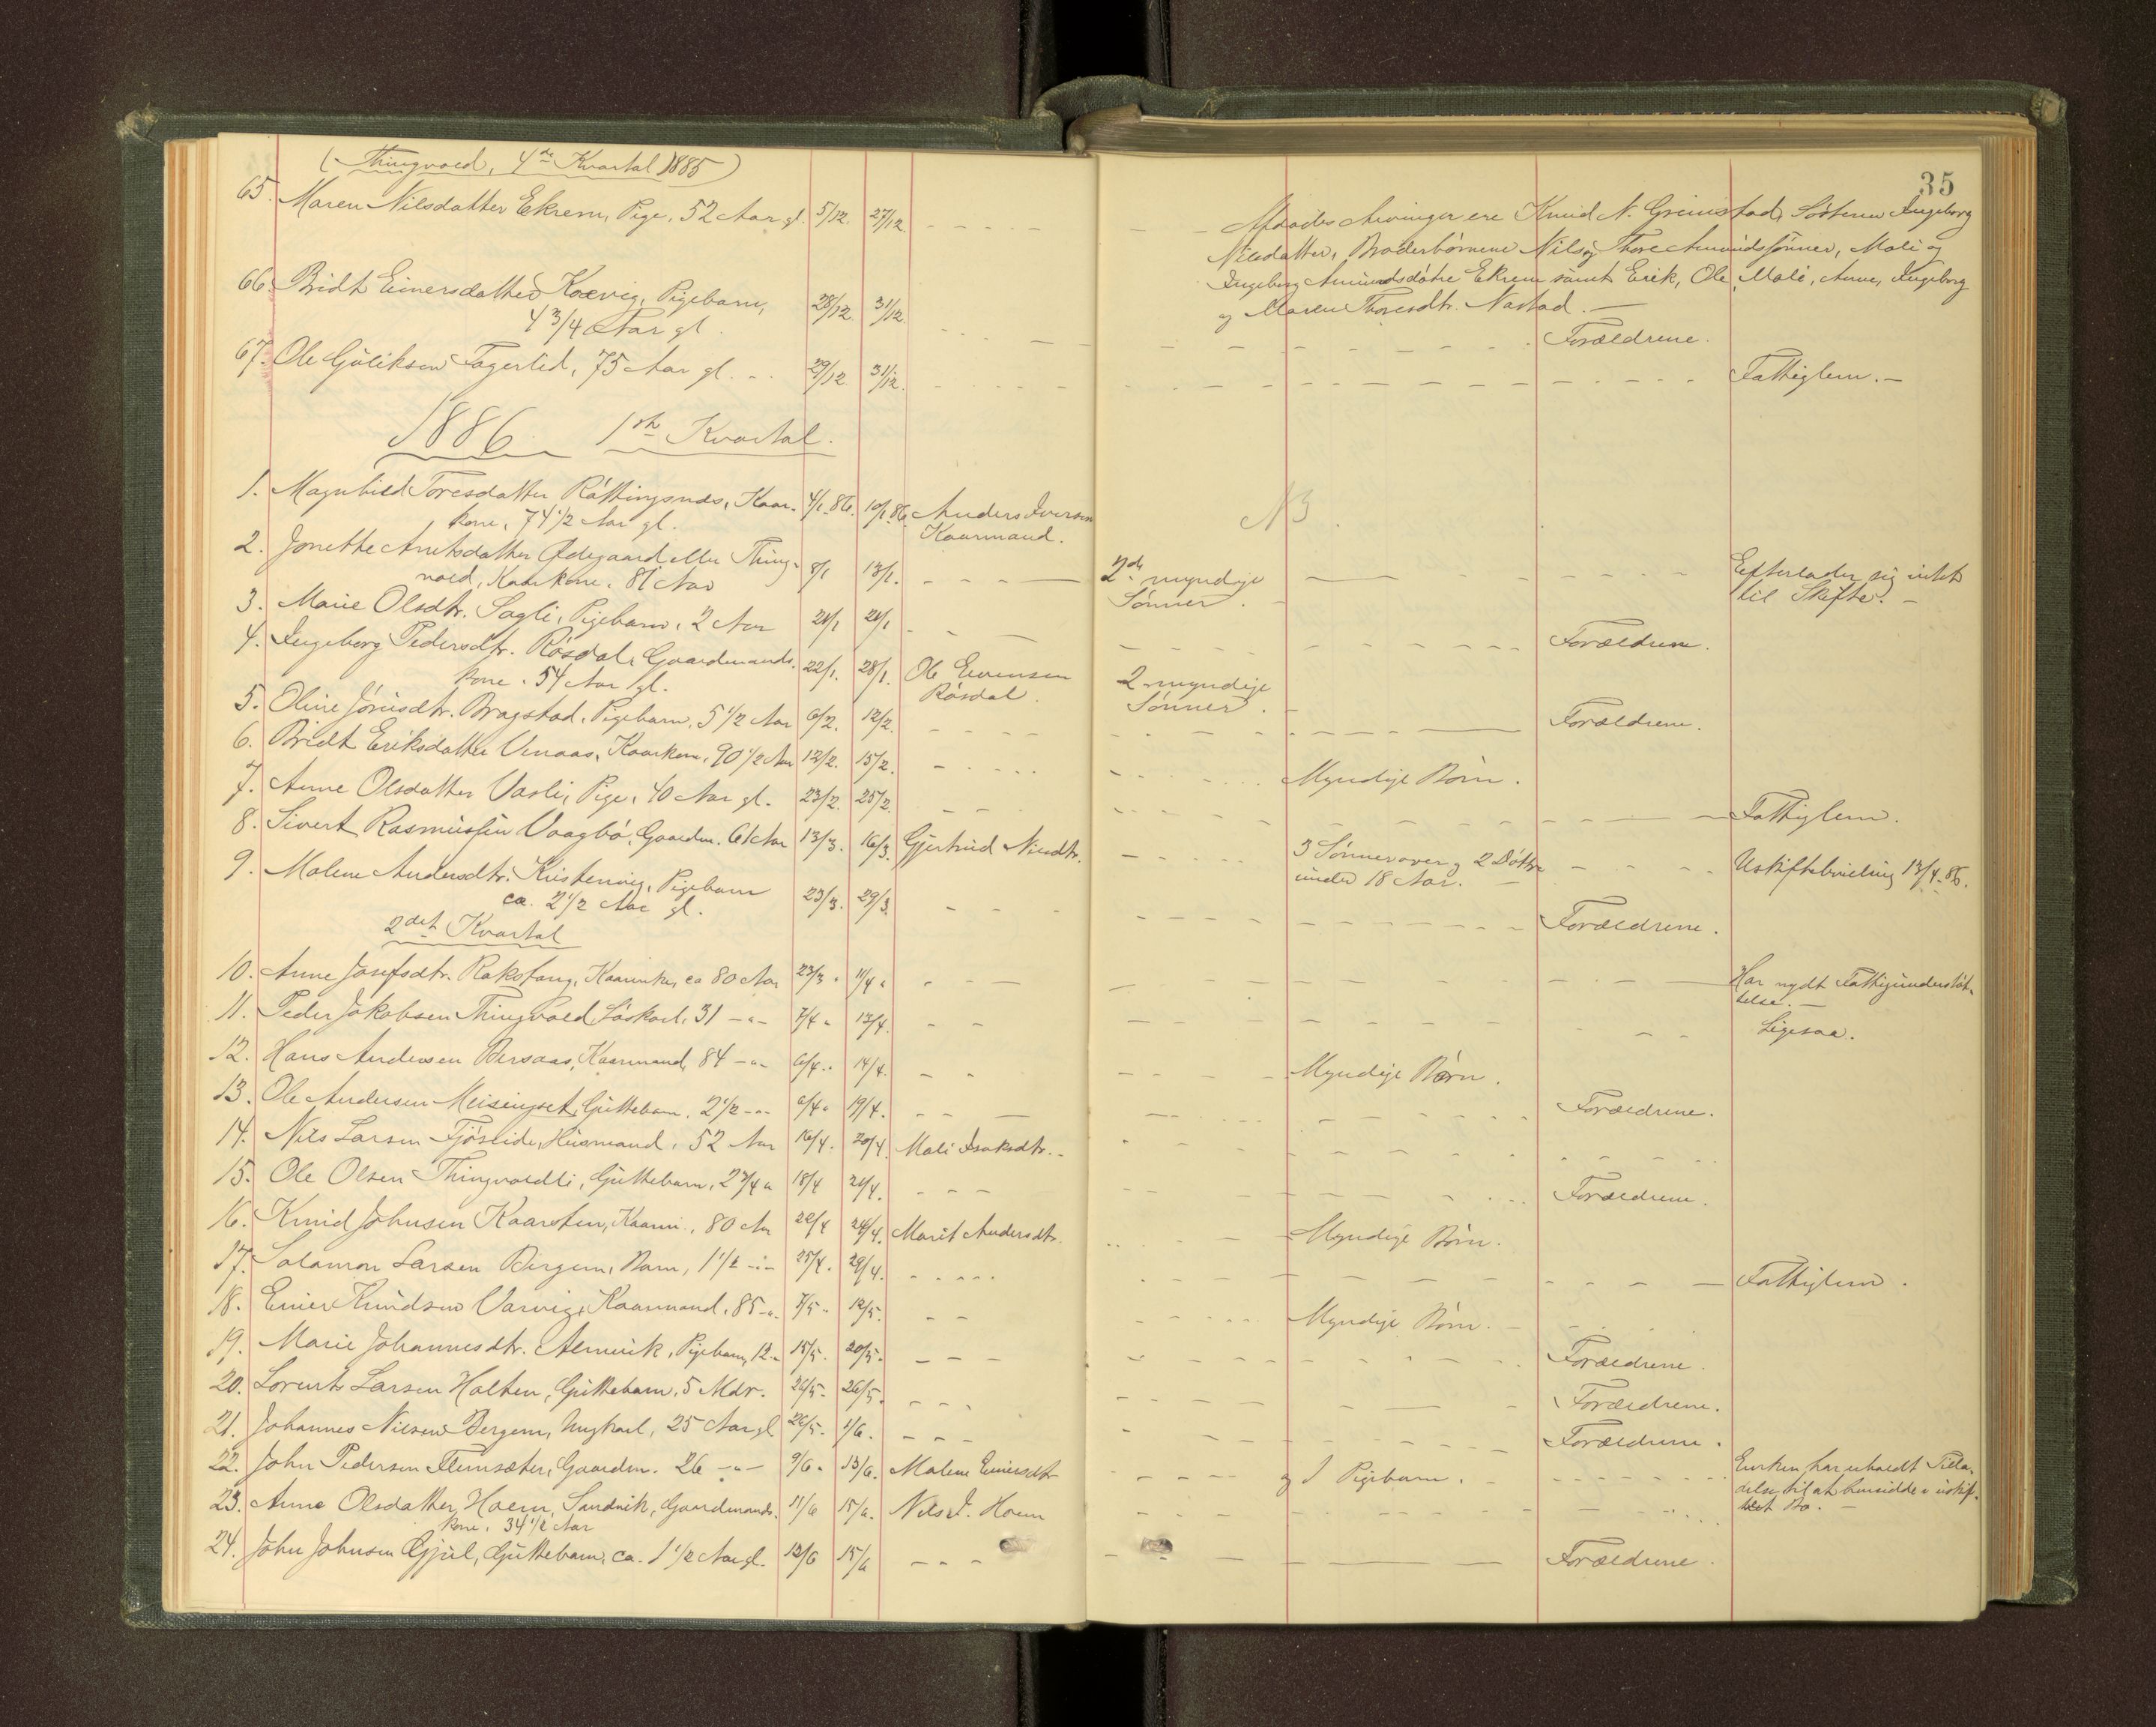 (Thingvold, 4de Kvartal 1885)
35
65. Maren Nilsdatter Ekrem, Pige, 52 Aar gl. 5/12. 27/12. Afdødes Arvinger ere Knud N. Grimstad, Søsteren Ingeborg
Nilsdatter, Broderbørnene Nils og Thore Amundssønner, Mali og
Ingeborg Amundsdøtre Ekrem samt Erik, Ole, Mali, Anne, Ingeborg
og Maren Thoresdtr. Nastad. —
66. Bridt Einersdatter Koksvig, Pigebarn, 28/12 31/12. Forældrene.
4 3/4 Aar gl.
67. Ole Guliksen Fagerlid, 75 Aar gl. 29/12 31/12. Fattiglem. —
1886. 1ste Kvartal.
1. Magnhild Toresdatter Røttingsnes, Kaar- 4/1 86. 10/1 86. Anders Iversen NB.
kone, 74 1/2 Aar gl. Kaarmand.
2. Jonette Arntsdatter Ødegaard eller Thing- 8/1 13/1. 2de myndige Efterlader sig intet
vold, Kaarkone, 81 Aar Sønner. til Skifte. —
3. Marie Olsdtr. Sagli, Pigebarn, 2 Aar 21/1 21/1 Forældrene.
4. Ingeborg Pedersdtr. Røsdal, Gaardmands- 22/1. 28/1. Ole Evensen 2 myndige
kone, 54 Aar gl. Røsdal. Sønner.
5. Oline Jónsdtr. Bragstad, Pigebarn, 5 1/2 Aar 6/2. 12/2. Forældrene.
6. Bridt Eriksdatter Venaas, Kaarkone, 90 1/2 Aar 12/2. 15/2. Myndige Børn.
7. Anne Olsdatter Vasli, Pige, 40 Aar gl. 23/2. 25/2. Fattiglem.
8. Sivert Rasmussen Vaagbø, Gaardm. 61 Aar 13/3. 16/3. Gjertrud Nilsdtr. 3 Sønner over og 2 Døtre Uskiftebevilling 13/4-86.
under 18 Aar.
9. Malene Andersdtr. Kristenvig, Pigebarn 23/3. 29/3. Forældrene.
ca. 2 1/2 Aar gl.
2det Kvartal
10. Anne Josefsdtr. Rakstang, Kaarenke, ca 80 Aar 23/3. 11/4. Har nydt Fattigunderstøt-
telse. —
11. Peder Jakobsen Thingvold, Løskarl, 31 —"— 7/4. 13/4. Ligesaa.
12. Hans Andersen Bersaas, Kaarmand, 84 —"— 6/4. 14/4. Myndige Børn.
13. Ole Andersen Meisingset, Guttebarn, 2 1/2 —"— 6/4. 19/4. Forældrene.
14. Nils Larsen Fjøseide, Husmand, 52 Aar 16/4. 20/4. Mali Isaksdtr.
15. Ole Olsen Thingvoldli, Guttebarn, 2 3/4 " 18/4 21/4. Forældrene.
16. Knud Johnsen Kaarsten, Kaarm., 80 Aar 22/4 24/4. Marit Andersdtr. Myndige Børn.
17. Salamon Larsen Bergem, Barn, 1 1/2 —"— 25/4. 29/4. Fattiglem.
18. Einer Knudsen Varvig, Kaarmand, 85 —"— 7/5. 12/5. Myndige Børn.
19. Marie Johannesdtr. Alnvik, Pigebarn, 12 " 15/5. 20/5. Forældrene.
20. Lorents Larsen Holten, Guttebarn, 5 Mdr. 26/5. 26/5. Forældrene.
21. Johannes Nilsen Bergem, Ungkarl, 25 Aar gl 26/5. 1/6. Forældrene.
22. John Pedersen Flemsæter, Gaardm. 26 —"— 9/6. 13/6. Malene Einersdtr og 1 Pigebarn. Enken har erholdt Tilla-
delse til at hensidde i uskif-
tet Bo. —
23. Anne Olsdatter Hoem, Sandvik, Gaardmands- 11/6 15/6. Nils J. Hoem
kone, 34 1/2 Aar
24. John Johnsen Gjul, Guttebarn, ca. 1 1/2 Aar gl. 12/6 15/6 Forældrene.